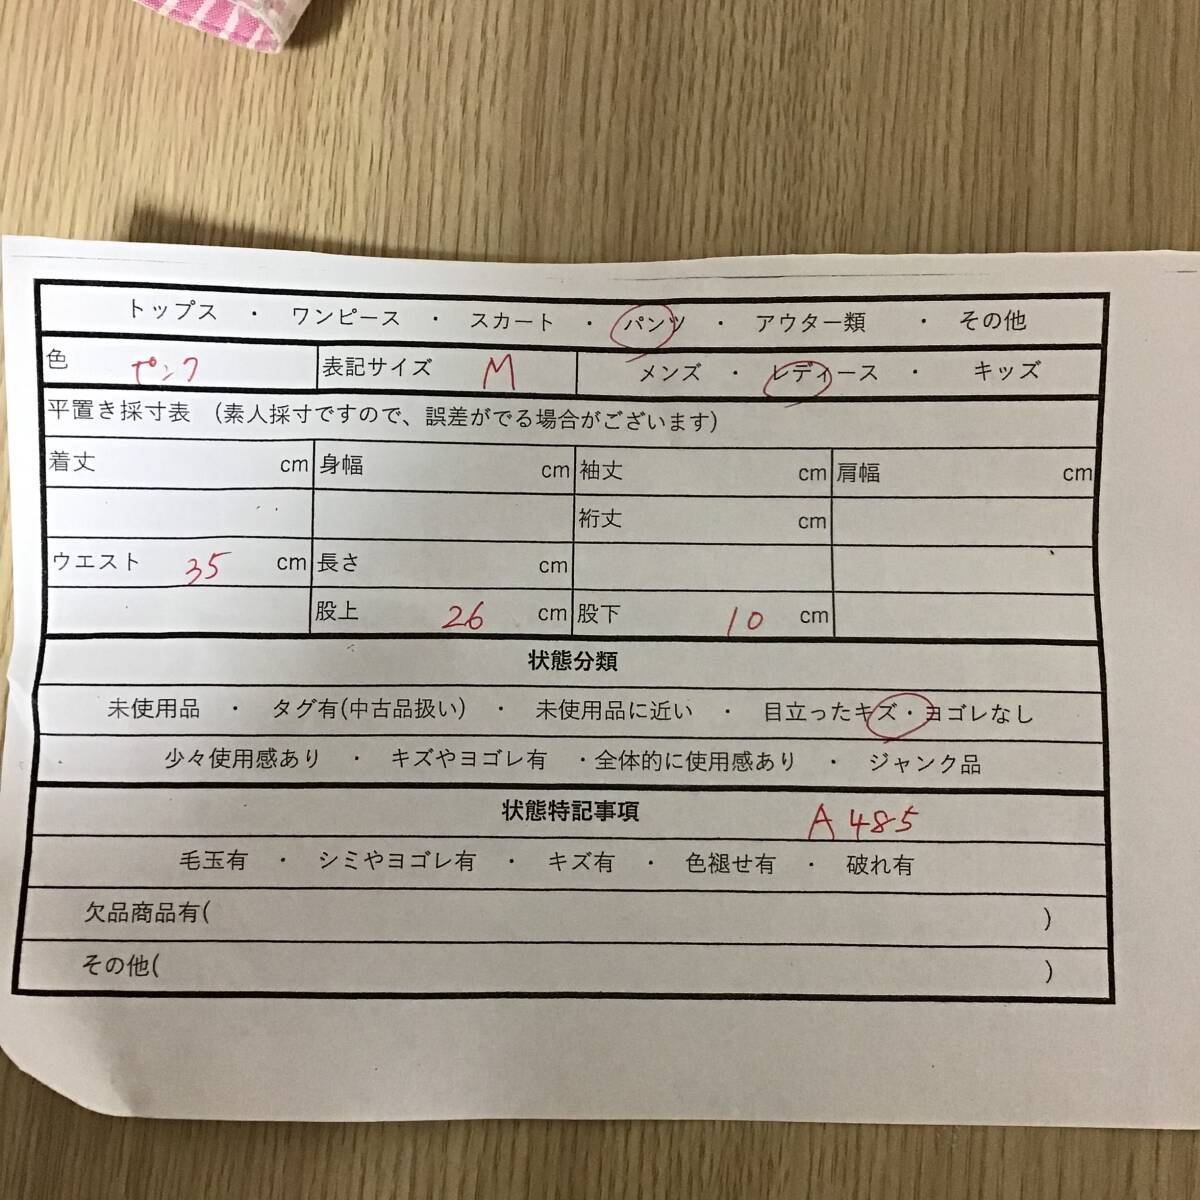 トップス ・ ワンピース ・ スカート ・ パンツ ・ アウター類 ・ その他
色 ピンク 表記サイズ M メンズ ・ レディース ・ キッズ
平置き採寸表 (素人採寸ですので、誤差がでる場合がございます)
着丈 cm 身幅 cm 袖丈 cm 肩幅 cm
裄丈 cm
ウエスト 35 cm 長さ cm
股上 26 cm 股下 10 cm
状態分類
未使用品 ・ タグ有(中古品扱い) ・ 未使用品に近い ・ 目立ったキズ・ヨゴレなし
少々使用感あり ・ キズやヨゴレ有 ・全体的に使用感あり ・ ジャンク品
状態特記事項 A485
毛玉有 ・ シミやヨゴレ有 ・ キズ有 ・ 色褪せ有 ・ 破れ有
欠品商品有( )
その他( )